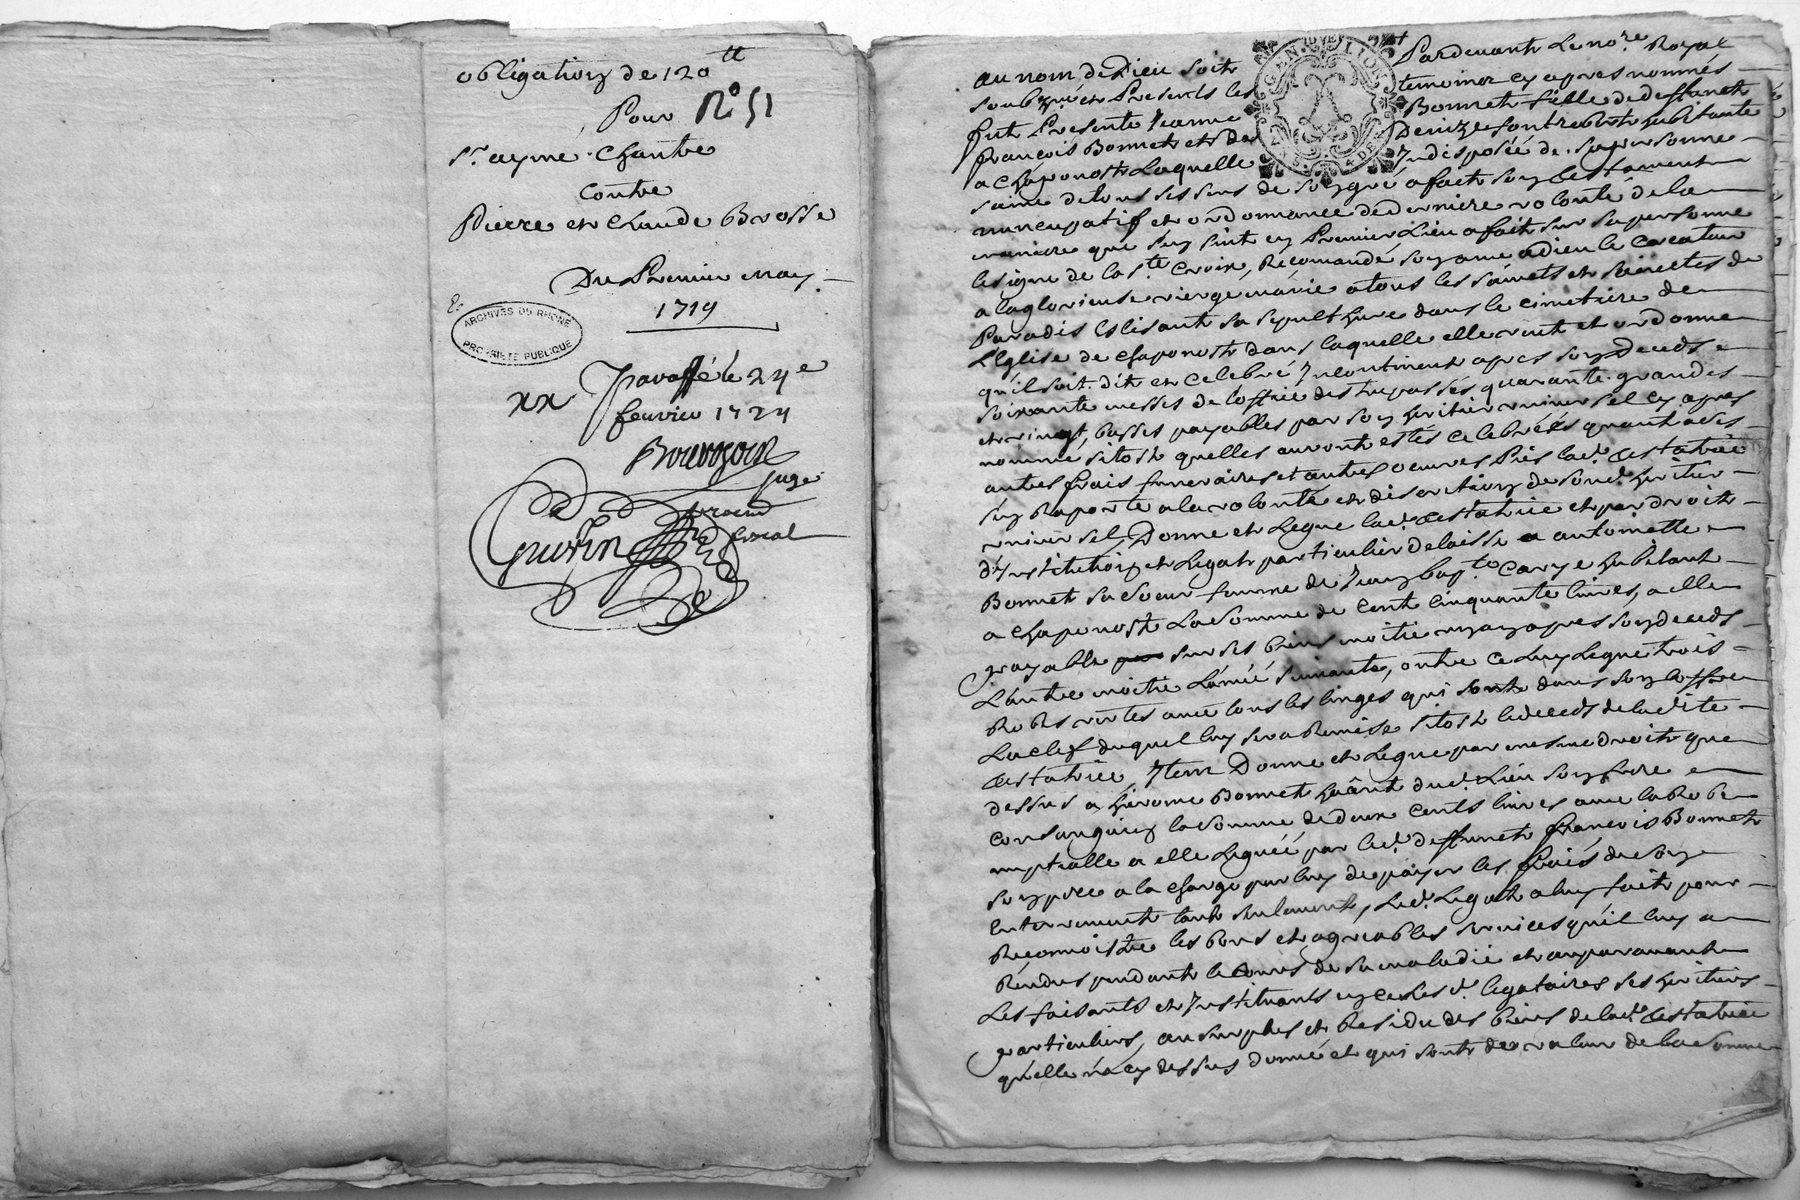 obligation de 120<sup>tt</sup>
Pour N° 51
s<sup>r</sup> ayme Chantre
contre
Pierre et Claude Brosse
Du Premier may
1719
ARCHIVES DU RHÔNE
PROPRIÉTÉ PUBLIQUE
xx Paraffé le 24<sup>e</sup>
feuvrier 1724
Bourgoin
juge
Guerin
fiscal
GEN. LION
au nom de Dieu soit Pardevant Le no<sup>re</sup> Royal
soubz<sup>né</sup> et Presents les temoins cy apres nommés
fut Presente Jeanne Bonnet fille de deffunct
françois Bonnet et de Denize fontrobert habitante
a chaponost Laquelle Indisposée de sa personne
saine de tous ses sens de son gré a fait son testament
nuncupatif et ordonnance de derniere volonté de la
maniere que sen suit en Premier Lieu a fait sur sa personne
le signe de la s<sup>te</sup> Croix, Recomandé son ame a dieu le Createur
a la glorieuse vierge marie a tous les saincts et sainctes de
Paradis Eslisant sa sepulthure dans le cimetiere de
L'Eglise de chaponost dans laquelle elle veut et ordonne
qu'il soit dit et celebré Incontinent apres son deceds
soixante messes de l'office des trepassés quarante grandes
et vingt basses payables par son heritier universel cy apres
nommé sitost quelles auront estés celebrées quant a des
autres frais funeraires et autres oeuvres Pies lad<sup>e</sup> testatrice
sen Raporte a la volonté et discretion de sond<sup>t</sup> heritier
universel, Donne et Legue lad<sup>e</sup> testatrice et par droict
d'Institution et Legat particulier delaisse a antoinette
Bonnet sa soeur femme de Jean bap<sup>te</sup> Carre habitant
a chaponost La somme de cent cinquante livres, a elle
payable sur ses biens moitié un an apres son deceds
L'autre moitié L'année suivante, outre ce Luy Legue trois
Robes vertes avec tous les linges qui sont dans son coffre
La clef duquel luy sera Remise sitost le deceds de ladite
testatrice, Item Donne et Legue par mesme droict que
dessus a hierome Bonnet hâbit<sup>t</sup> dud<sup>t</sup> Lieu son frere
consanguin la somme de deux cents livres avec la Robe
nuptialle a elle Leguée par led<sup>t</sup> deffunct françois Bonnet
son pere a la charge par luy de payer les frais de son
Enterrement tant seulement, Led<sup>t</sup> Legat a luy fait pour
Reconnoistre les bons et agreables services qu'il luy a
Rendus pendant le cours de sa maladie et auparavant
Les faisants et Instituants en cesd<sup>ts</sup> legataires ses heritiers
particuliers, au surplus et Residu des biens de lad<sup>e</sup> testatrice
qu'elle n'a cy dessus donné et qui sont de valeur de la somme